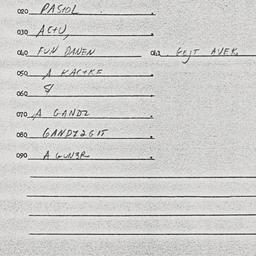 020 PASTOL
030 ACTU,
040 FUN DAVEN 042 GEJT AVER.
050 A KACTKE
060 &
070 A GANDZ
080 GANDZ2GIT
090 A GUNZR